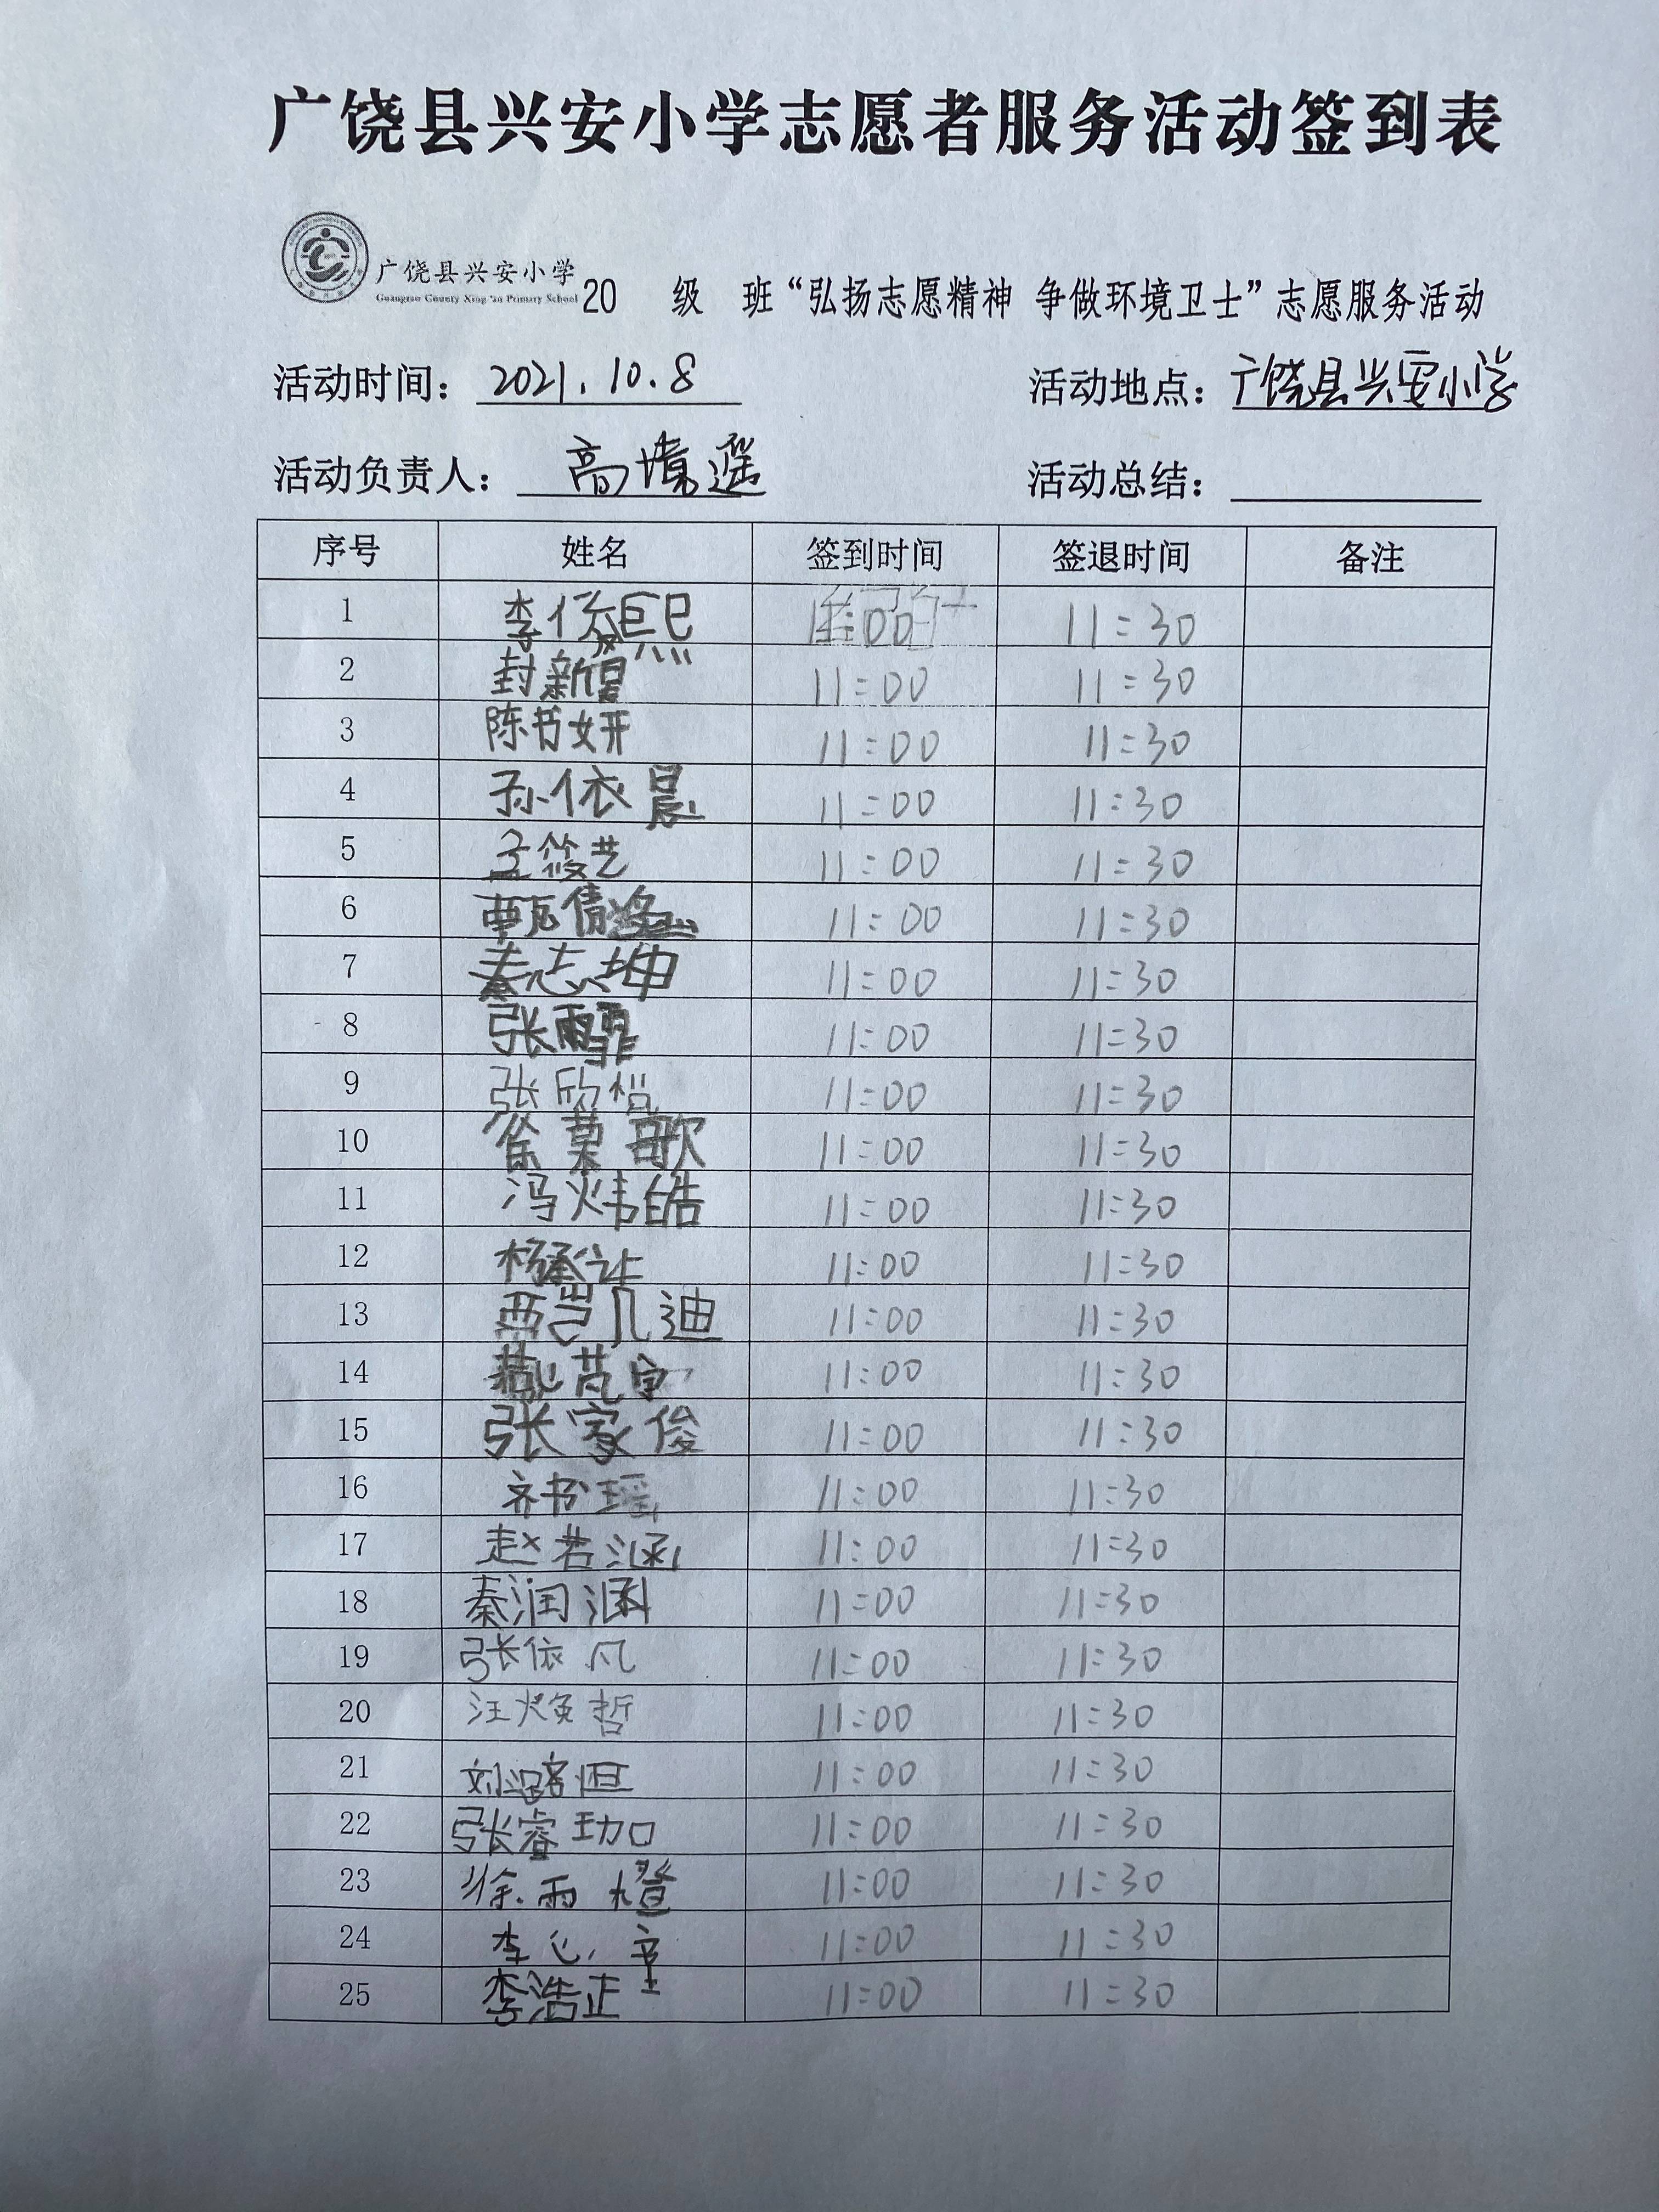 广饶县兴安小学志愿者服务活动签到表
广饶县兴安小学
Guangrao County Xing'an Primary School
20 级 班“弘扬志愿精神 争做环境卫士”志愿服务活动
活动时间：2021.10.8 活动地点：广饶县兴安小学
活动负责人：高境遥 活动总结：
序号 姓名 签到时间 签退时间 备注
1 李 熙 11:00 11:30
2 封新 11:00 11:30
3 陈书妍 11:00 11:30
4 孙依晨 11:00 11:30
5 孟筱艺 11:00 11:30
6 甄倩 11:00 11:30
7 秦志坤 11:00 11:30
8 张雨霏 11:00 11:30
9 张欣 11:00 11:30
10 徐慕歌 11:00 11:30
11 冯炜皓 11:00 11:30
12 杨承让 11:00 11:30
13 贾凯迪 11:00 11:30
14 11:00 11:30
15 张家俊 11:00 11:30
16 齐书瑶 11:00 11:30
17 赵若涵 11:00 11:30
18 秦润涵 11:00 11:30
19 张依凡 11:00 11:30
20 汪焕哲 11:00 11:30
21 刘 恒 11:00 11:30
22 张睿珈 11:00 11:30
23 徐雨橙 11:00 11:30
24 李心童 11:00 11:30
25 李浩正 11:00 11:30